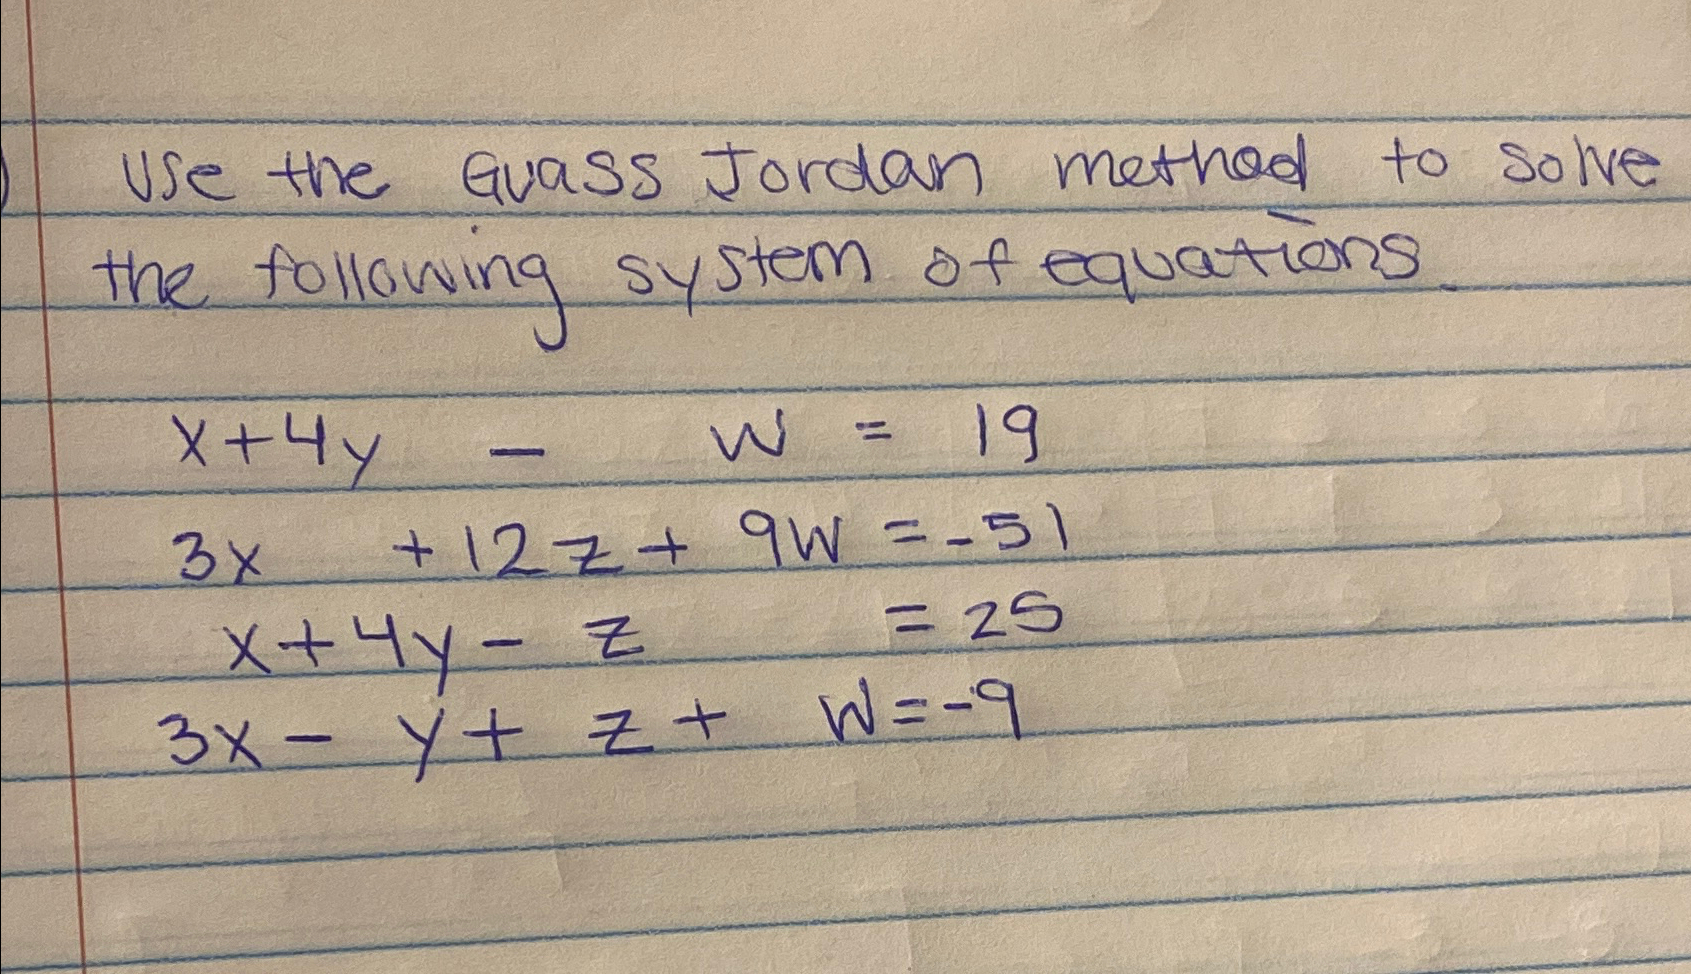 Use the Guass Jordan method to solve
the following system of equations.
x+4y - w = 19
3x +12z+ 9w =-51
x+4y- z = 25
3x- y+ z+ w=-9